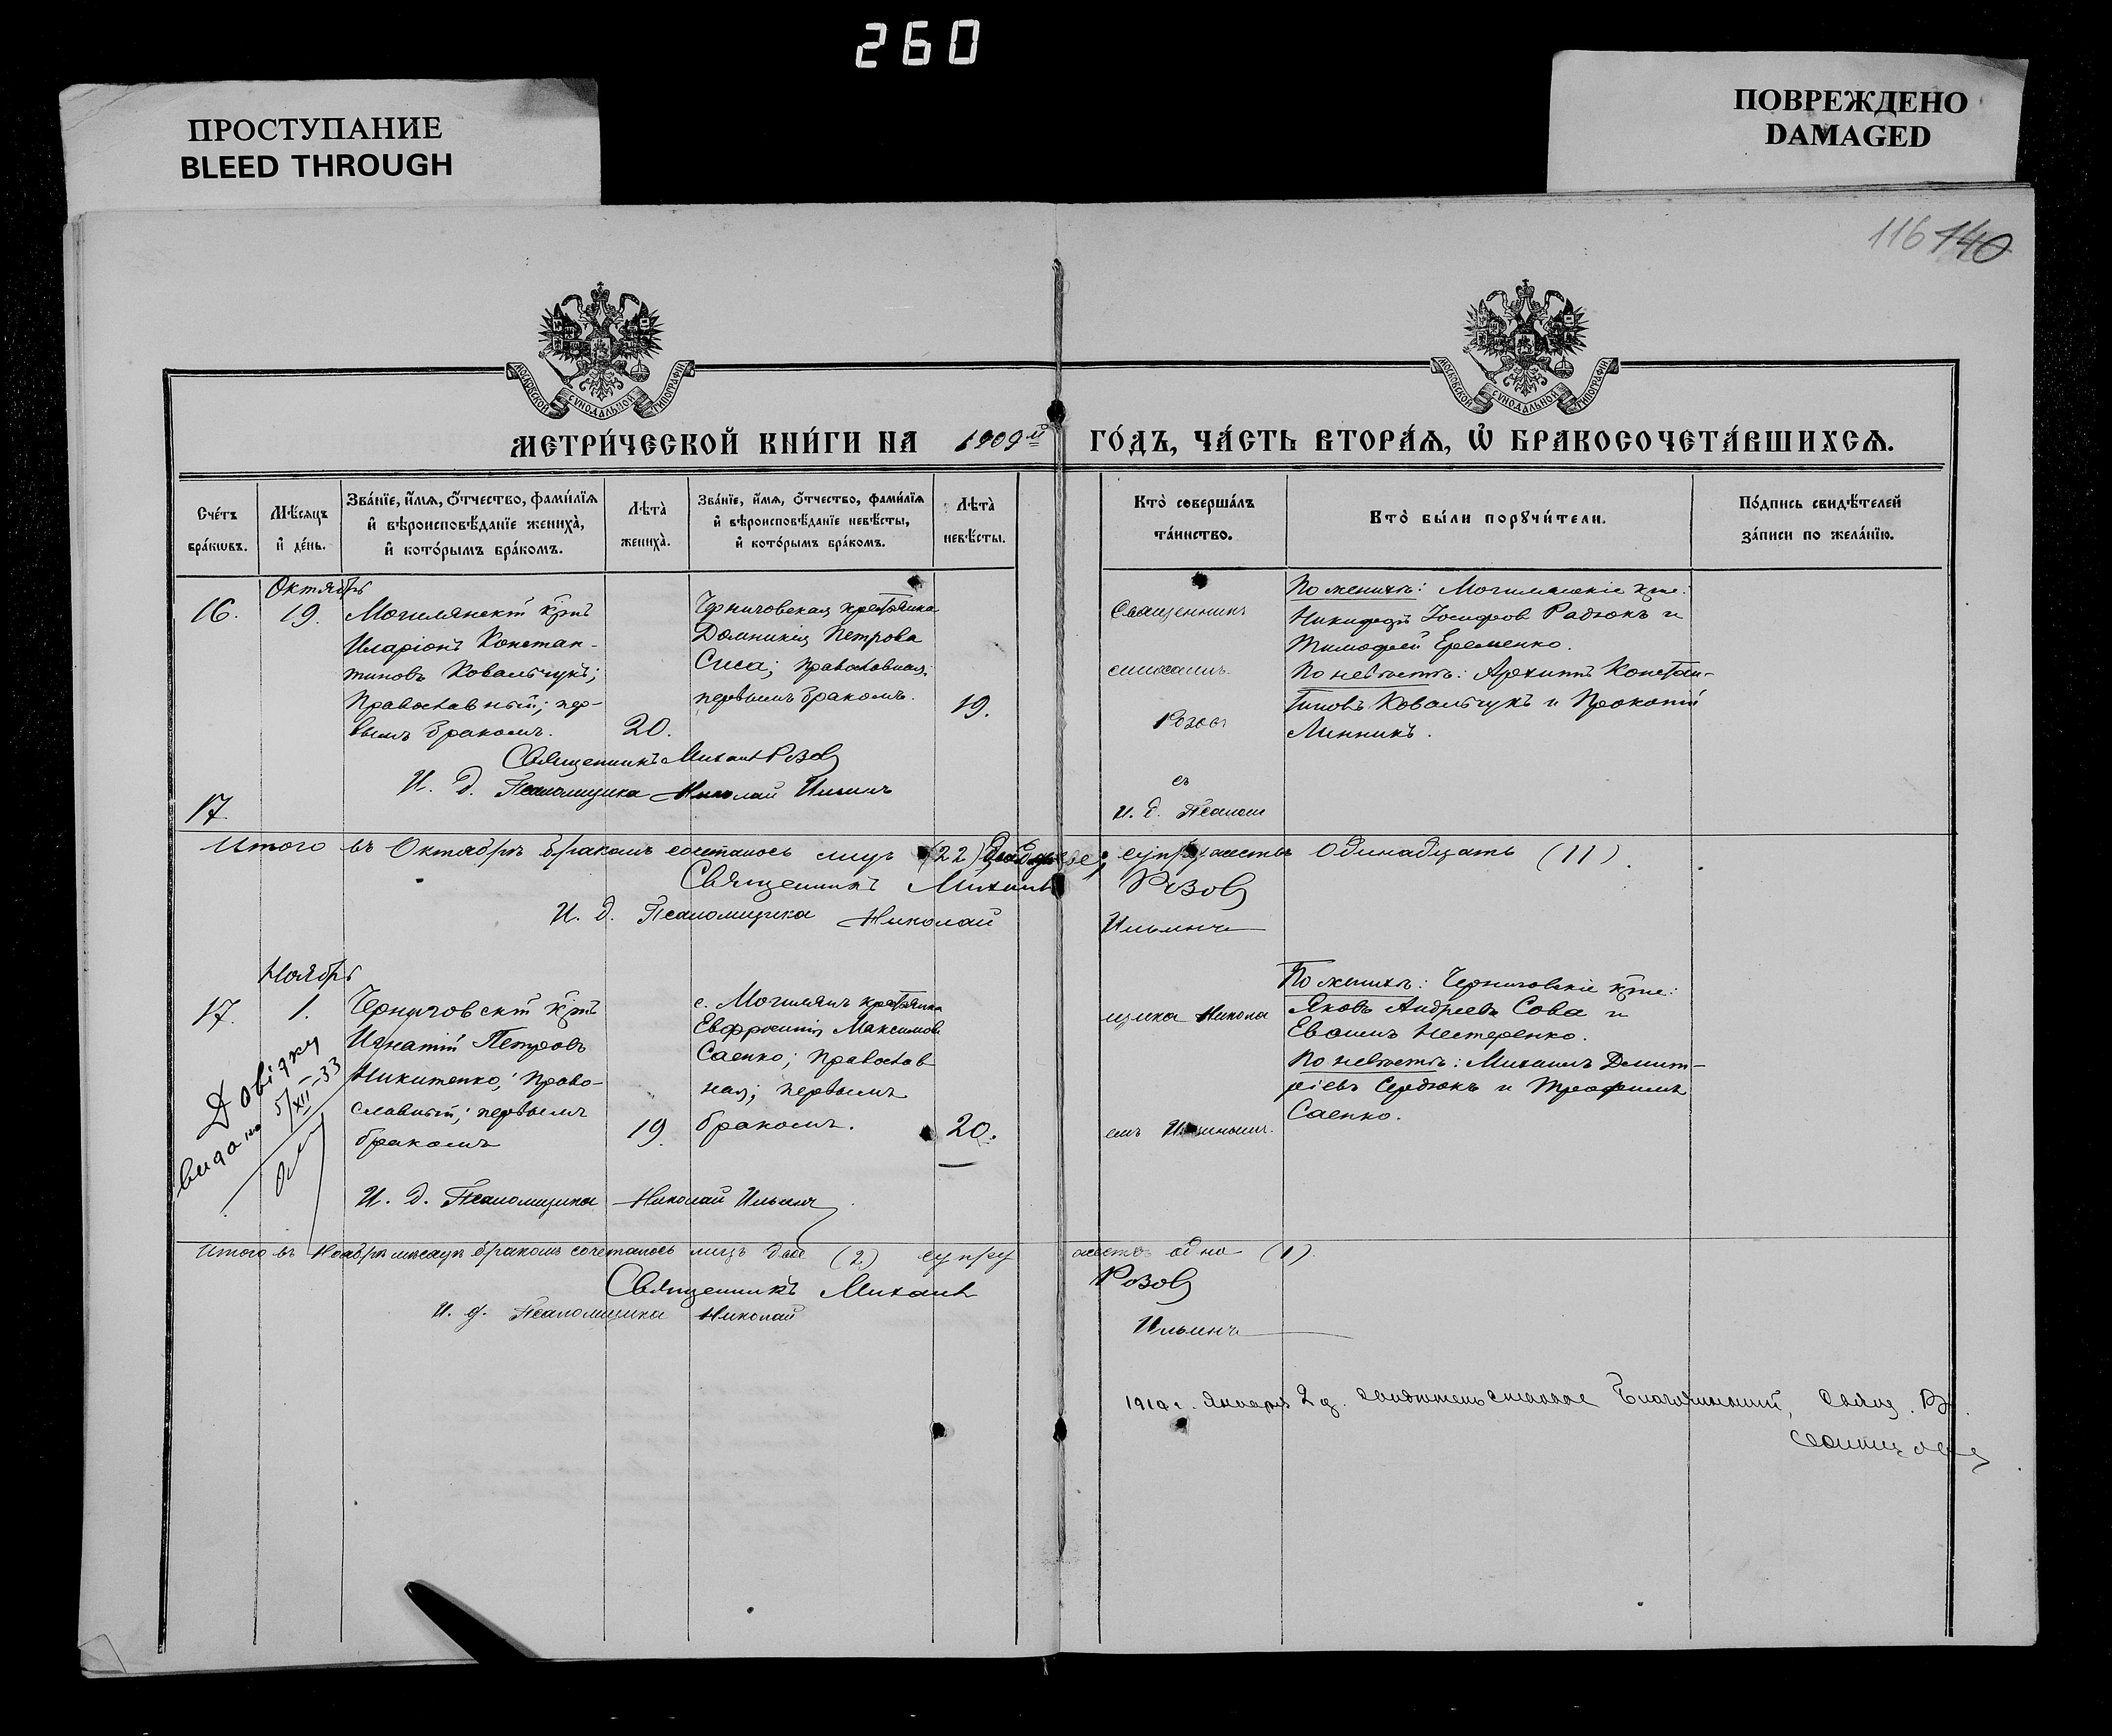 260
ПРОСТУПАНИЕ
BLEED THROUGH
ПОВРЕЖДЕНО
DAMAGED
116 140
МОСКОВСКОЙ СѴНОДАЛЬНОЙ ТИПОГРАФІИ
МОСКОВСКОЙ СѴНОДАЛЬНОЙ ТИПОГРАФІИ
МЕТРИ́ЧЕСКОЙ КНИ́ГИ НА 1909й ГО́ДЪ, ЧА́СТЬ ВТОРА́Ѧ, Ѽ БРАКОСОЧЕТА́ВШИХСѦ.
Сче́тъ
бра́кѡвъ.
Мѣ́сяцъ
и҆ де́нь.
Зва́нїе, и҆́мѧ, ѻ҆́тчество, фами́лїѧ
и҆ вѣроисповѣ́данїе жениха̀,
и҆ кото́рымъ бра́комъ.
Лѣ́та̀
жениха̀.
Зва́нїе, и҆́мѧ, ѻ҆́тчество, фами́лїѧ
и҆ вѣроисповѣ́данїе невѣ́сты,
и҆ кото́рымъ бра́комъ.
Лѣ́та̀
невѣ́сты.
Кто̀ соверша́лъ
та́инство.
Кто̀ бы́ли порꙋчи́тели.
По́дпись свидѣ́телей
за́писи по жела́нїю.
Октябрь
16.
19.
Могилянскій кр-нъ
Иларіонъ Констан-
тиновъ Ковальчукъ;
Православный; пер-
вымъ бракомъ.
20.
Черниговская крестьянка
Домникія Петрова
Сиса; православная;
первымъ бракомъ.
19.
Священникъ
Михаилъ
Розовъ
съ
И. д. Псалом
По женихѣ: Могилянскіе кр-не:
Никифоръ Іосифовъ Радюкъ и
Тимофей Еременко.
По невѣстѣ: Архипъ Констан-
тиновъ Ковальчукъ и Прокопій
Линникъ.
Священникъ Михаилъ Розовъ
И. д. Псаломщика Николай Ильинъ
17
Итого въ Октябрѣ бракомъ сочеталось лицъ (22) супружествъ Одинадцать (11).
Священникъ Михаилъ Розовъ
И. д. Псаломщика Николай Ильинъ
Ноябрь
17.
1.
Черниговскій кр-нъ
Игнатій Петровъ
Никитенко; Право-
славный; первымъ
бракомъ
19.
с. Могилянъ крестьянка
Евфросинія Максимова
Саенко; Православ
ная; первымъ
бракомъ.
20.
щика Никола
емъ Ильинымъ.
По женихѣ: Черниговскіе кр-не:
Яковъ Андреевъ Сова и
Евфимъ Нестеренко.
По невѣстѣ: Михаилъ Димит-
ріевъ Сердюкъ и Трофимъ
Саенко.
Довідку
видано 5/XII-33
И. д. Псаломщика Николай Ильинъ
Итого въ Ноябрѣ мѣсяцѣ бракомъ сочеталось лицъ двое (2) супру жество одно (1)
Священникъ Михаилъ Розовъ
И. д. Псаломщика Николай Ильинъ
1910 г. Января 2 д. свидѣтельствовалъ Благочинный, Свящ. В.